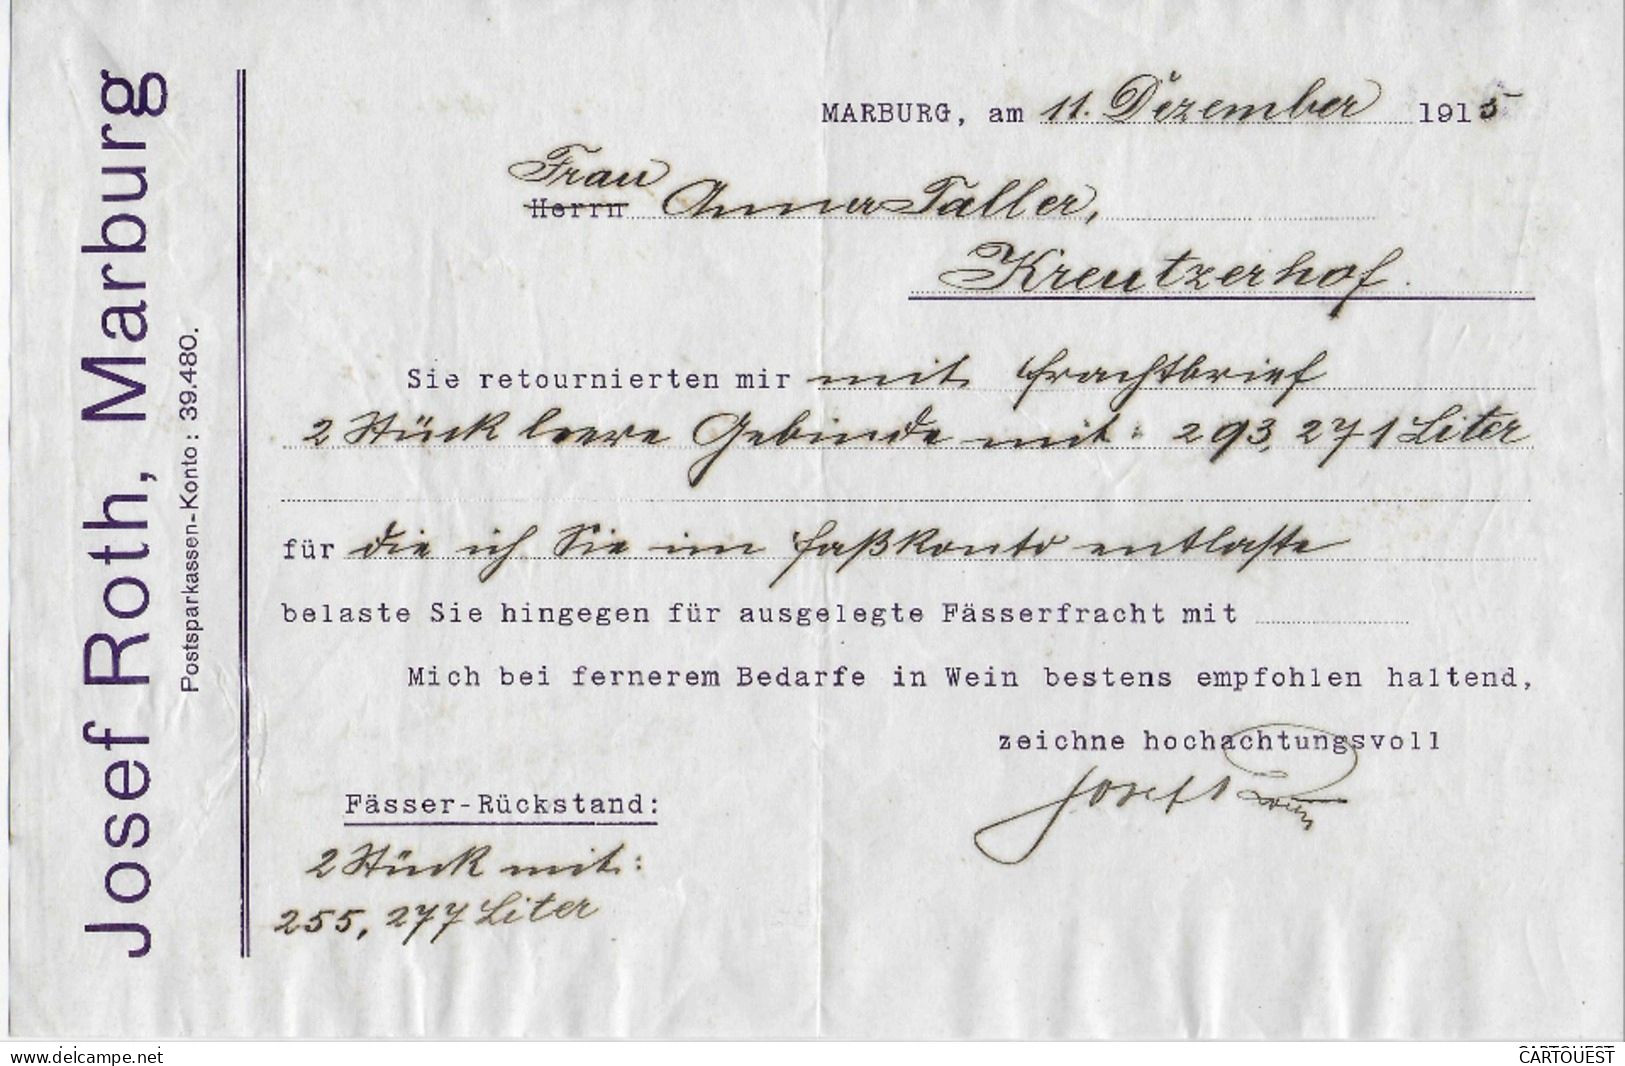 Josef Roth, Marburg
Postsparkassen-Konto: 39.480.
MARBURG, am 11. Dezember 1915
Frau
Herrn Anna Taller,
Kreutzerhof.
Sie retournierten mir mit Frachtbrief
2 Stück leere Gebinde mit: 293, 271 Liter
für die ich Sie im Faßkonto entlaste
belaste Sie hingegen für ausgelegte Fässerfracht mit
Mich bei fernerem Bedarfe in Wein bestens empfohlen haltend,
zeichne hochachtungsvoll
Josef Roth
Fässer-Rückstand:
2 Stück mit:
255, 277 Liter
www.delcampe.net
CARTOUEST